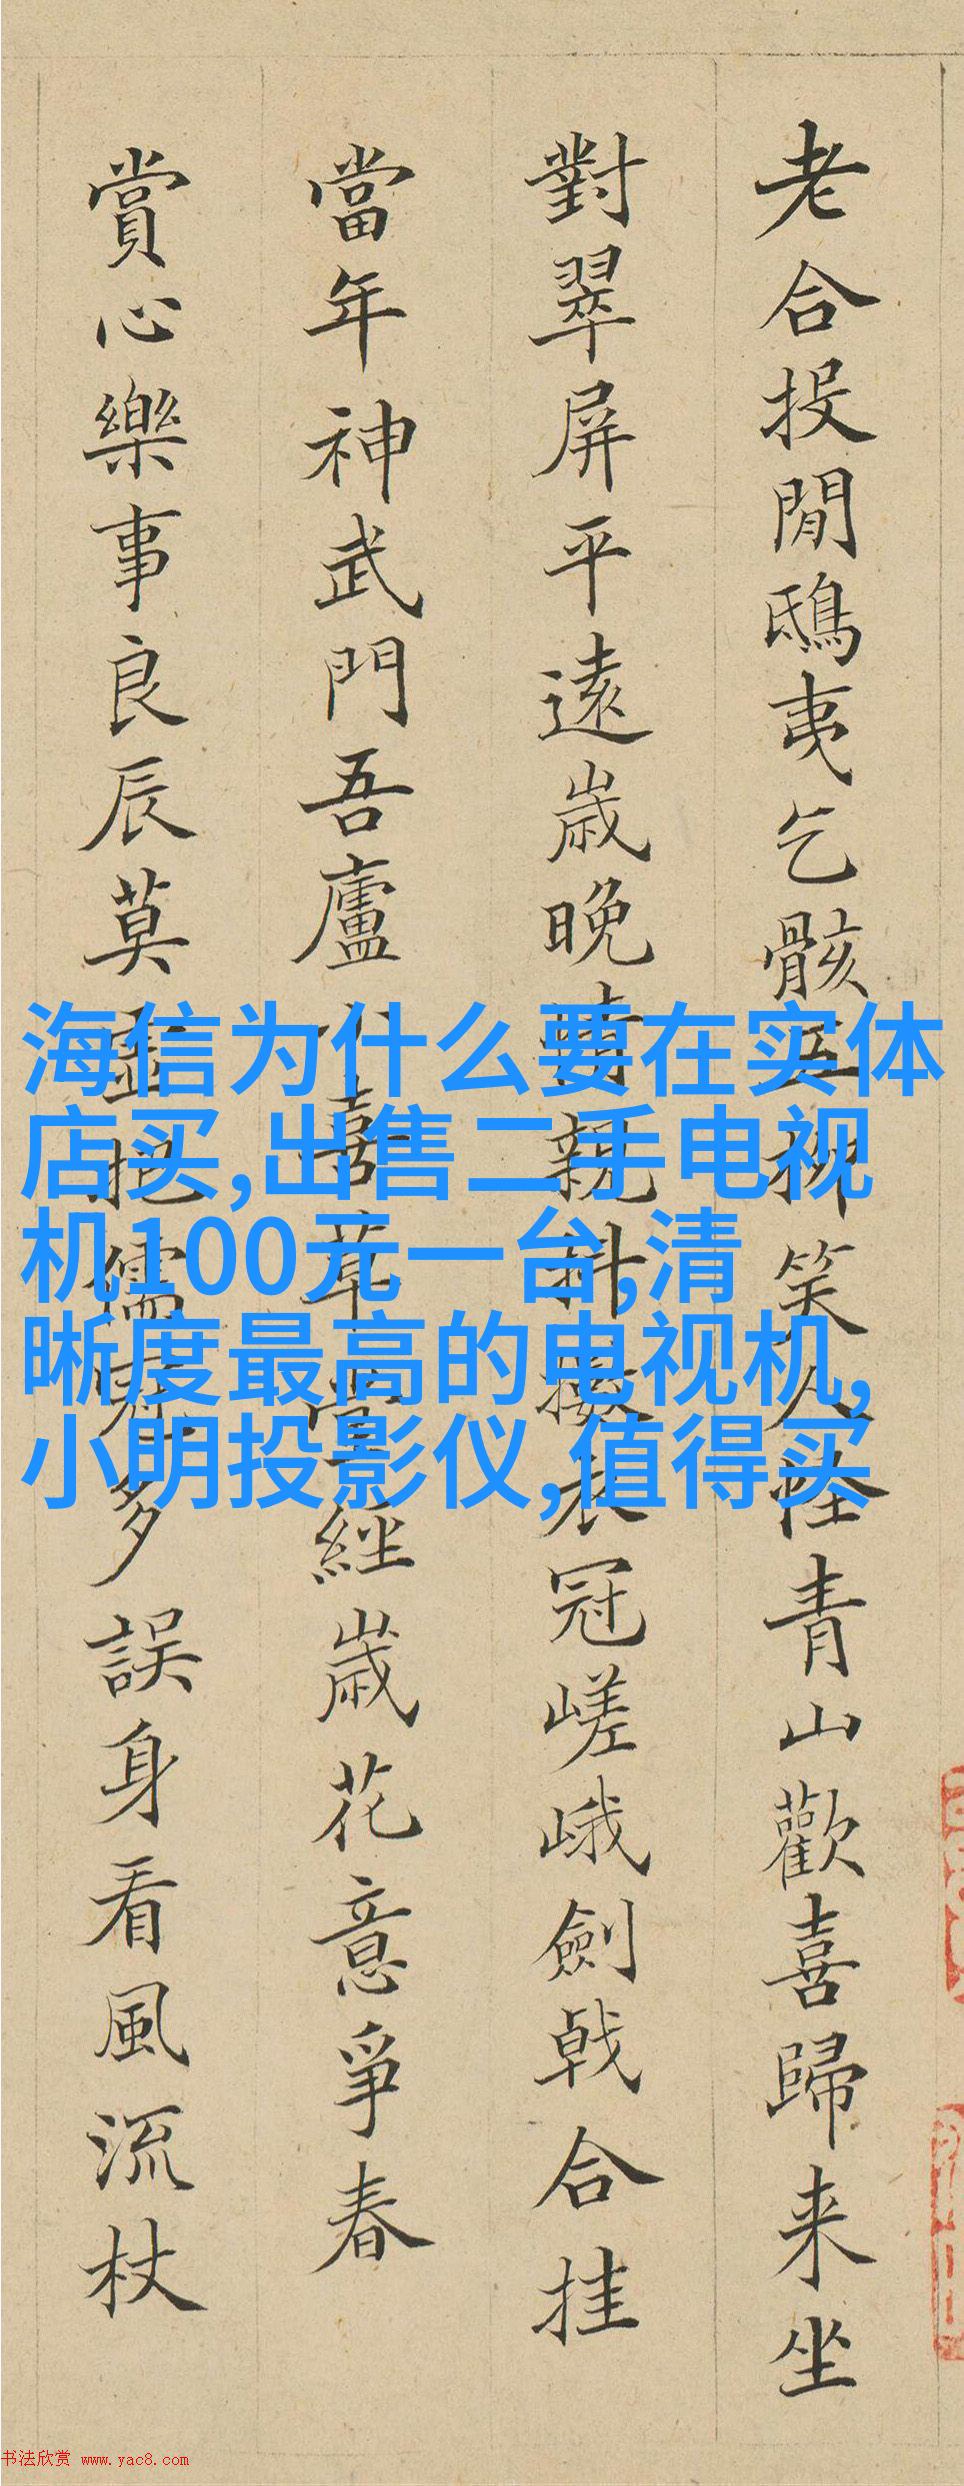 老合投閒鴟夷乞骸五柳笑人怪青山歡喜歸来坐
對翠屏平遠歲晚情親料衣冠嵯峨劍戟合挂
當年神武門吾廬喜草堂經歲花意爭春
賞心樂事良辰莫虛拋儒冠多誤身看風流杖
海信为什么要在实体
店买,出售二手电视
机100元一台,清
晰度最高的电视机,
小明投影仪,值得买
书法欣赏 www.yac8.com